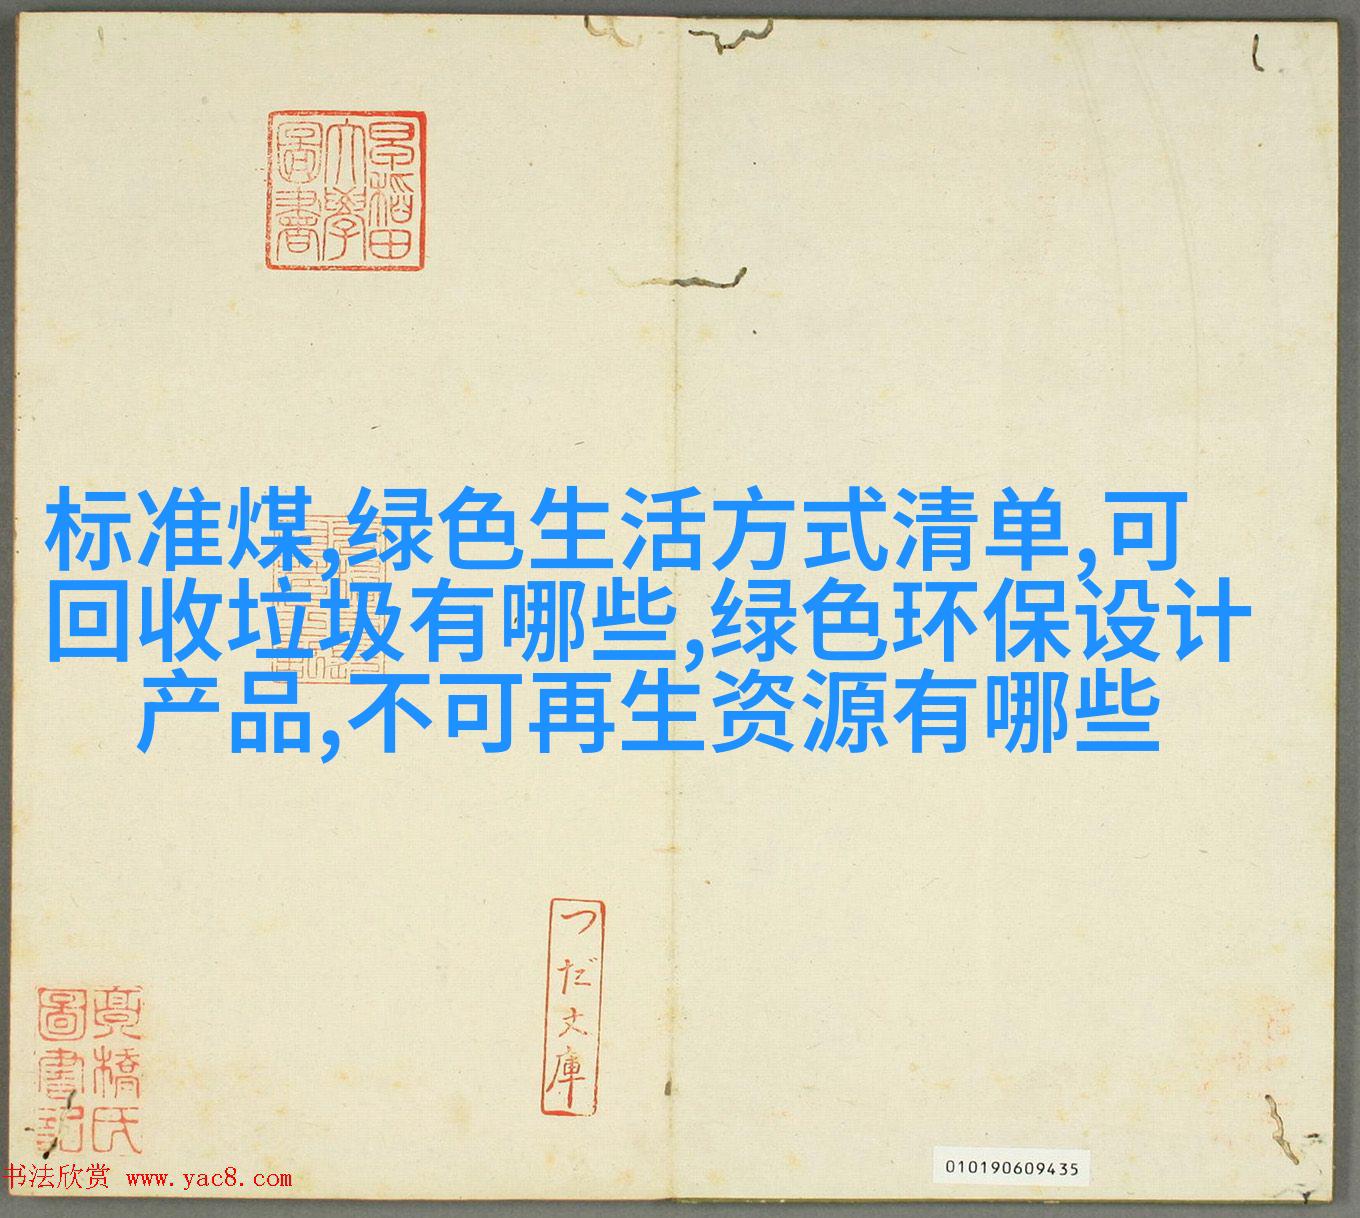 早稲田
大學
圖書
标准煤,绿色生活方式清单,可
回收垃圾有哪些,绿色环保设计
产品,不可再生资源有哪些
つだ文庫
橋氏
圖書記
书法欣赏 www.yac8.com
010190609435